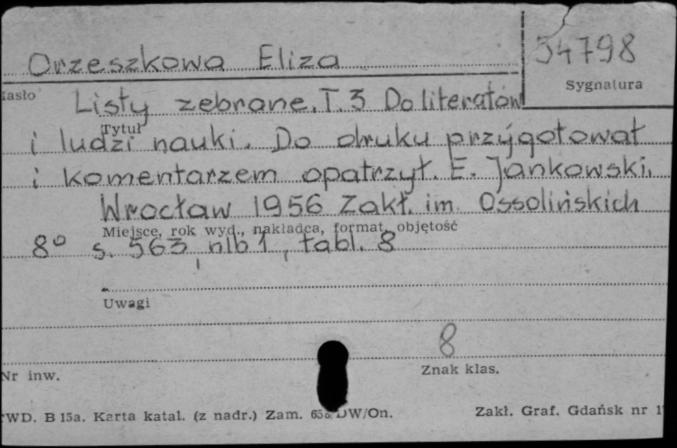 Orzeszkowa Eliza
54798
Sygnatura
Hasło
Listy zebrane. T. 3 Do literatów
Tytuł
i ludzi nauki. Do druku przygotował
i komentarzem opatrzył. E. Jankowski.
Wrocław 1956 Zakł. im. Ossolińskich
Miejsce, rok wyd., nakładca, format, objętość
8° s. 563, nlb 1, tabl. 8
Uwagi
8
Nr inw.
Znak klas.
WD. B 15a. Karta katal. (z nadr.) Zam. DW/On.
Zakł. Graf. Gdańsk nr 1